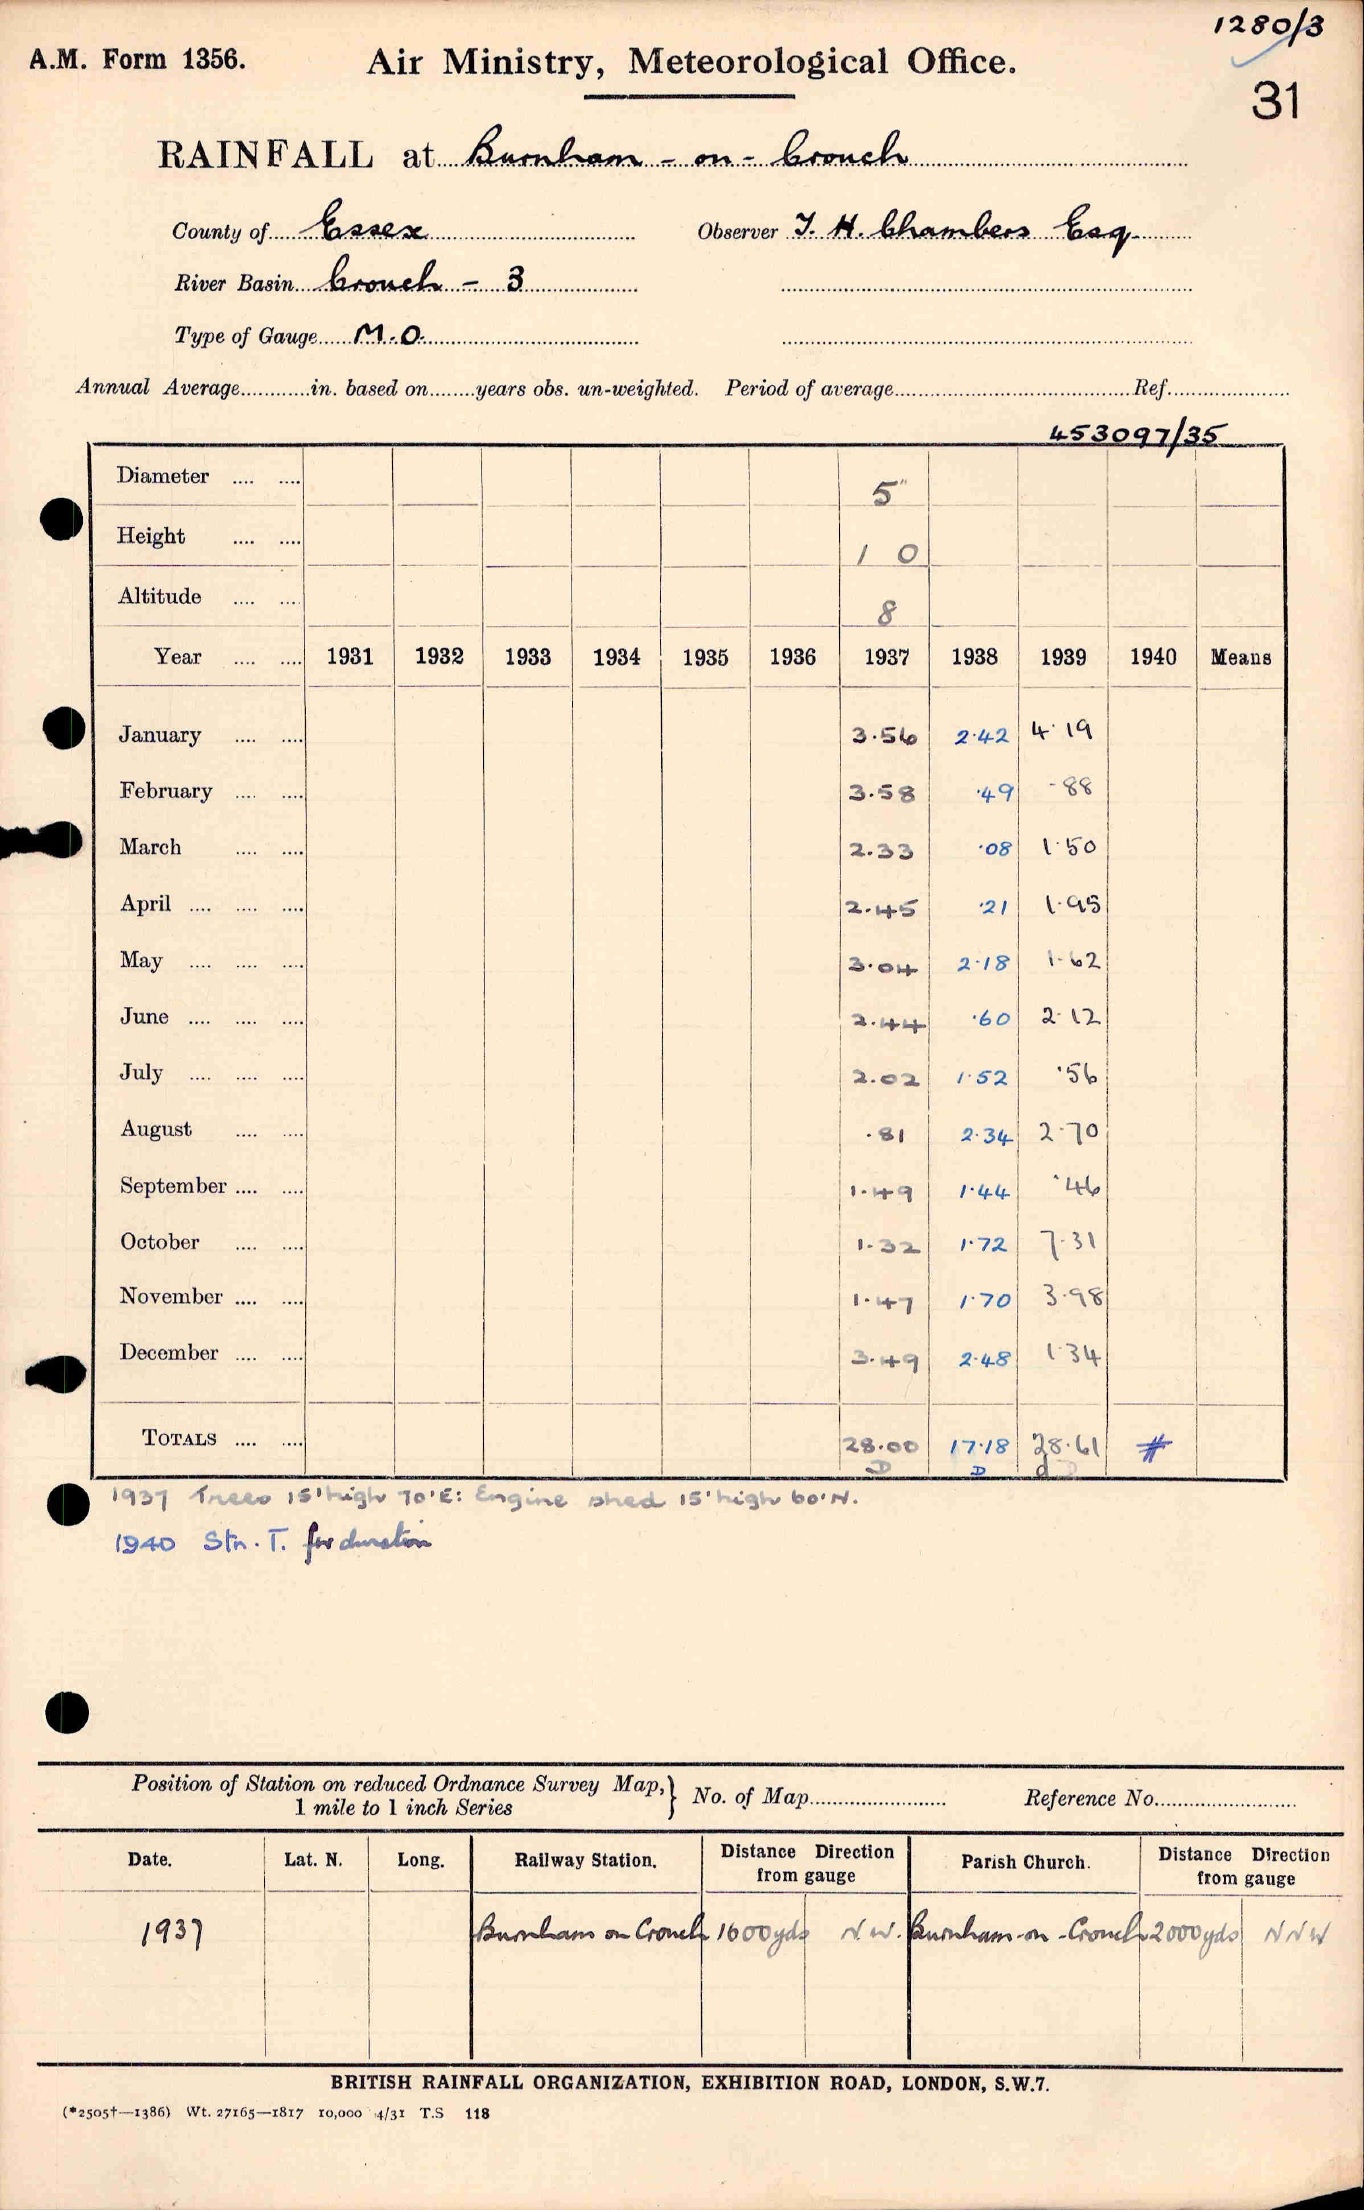 1280/3
A.M. Form 1356. Air Ministry, Meteorological Office.
31
RAINFALL at Burnham - on - Crouch
County of Essex Observer T. H. Chambers Esq.
River Basin Crouch - 3
Type of Gauge M.O.
Annual Average............in. based on........years obs. un-weighted. Period of average........................................Ref.....................
453097/35
Diameter .... .... 5"
Height .... .... 1 0
Altitude .... .... 8
Year .... .... 1931 1932 1933 1934 1935 1936 1937 1938 1939 1940 Means
January .... .... 3.56 2.42 4.19
February .... .... 3.58 .49 .88
March .... .... 2.33 .08 1.50
April .... .... .... 2.45 .21 1.95
May .... .... .... 3.04 2.18 1.62
June .... .... .... 2.44 .60 2.12
July .... .... .... 2.02 1.52 .56
August .... .... .81 2.34 2.70
September .... .... 1.49 1.44 .46
October .... .... 1.32 1.72 7.31
November .... .... 1.47 1.70 3.98
December .... .... 3.49 2.48 1.34
TOTALS .... .... 28.00 17.18 28.61 #
D D d D
1937 Trees 15' high 70' E: Engine shed 15' high 60' N.
1940 Stn. T. for duration
Position of Station on reduced Ordnance Survey Map, } No. of Map........................ Reference No.........................
1 mile to 1 inch Series
Date. Lat. N. Long. Railway Station. Distance Direction from gauge Parish Church. Distance Direction from gauge
1937 Burnham on Crouch 1600 yds N.W. Burnham-on-Crouch 2000 yds N N W
BRITISH RAINFALL ORGANIZATION, EXHIBITION ROAD, LONDON, S.W.7.
(*2505†—1386) Wt. 27165—1817 10,000 4/31 T.S 118